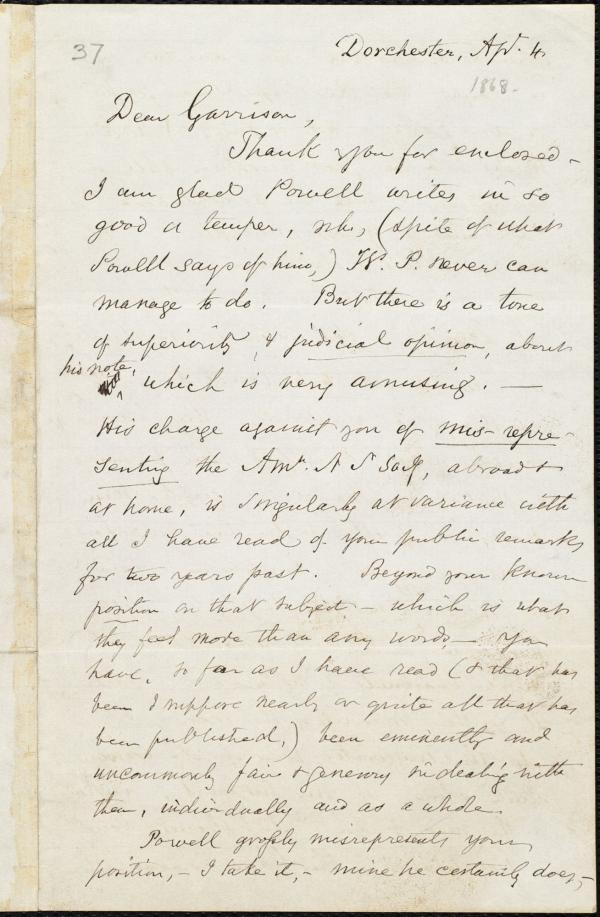 37
Dorchester, Apr. 4.
1868.
Dear Garrison,
Thank you for enclosed –
I am glad Powell writes in so
good a temper, wh., (spite of what
Powell says of him,) W. P. never can
manage to do. But there is a tone
of superiority, & judicial opinion, about
his note,
which is very amusing. —
His charge against you of mis-repre-
senting the Amn. A S Socy, abroad &
at home, is singularly at variance with
all I have read of your public remarks
for two years past. Beyond your known
position on that subject – which is what
they feel more than any words, – you
have, so far as I have read (& that has
been I suppose nearly or quite all that has
been published,) been eminently and
uncommonly fair & generous in dealing with
them, individually and as a whole.
Powell grossly misrepresents your
position, – I take it, – mine he certainly does, –